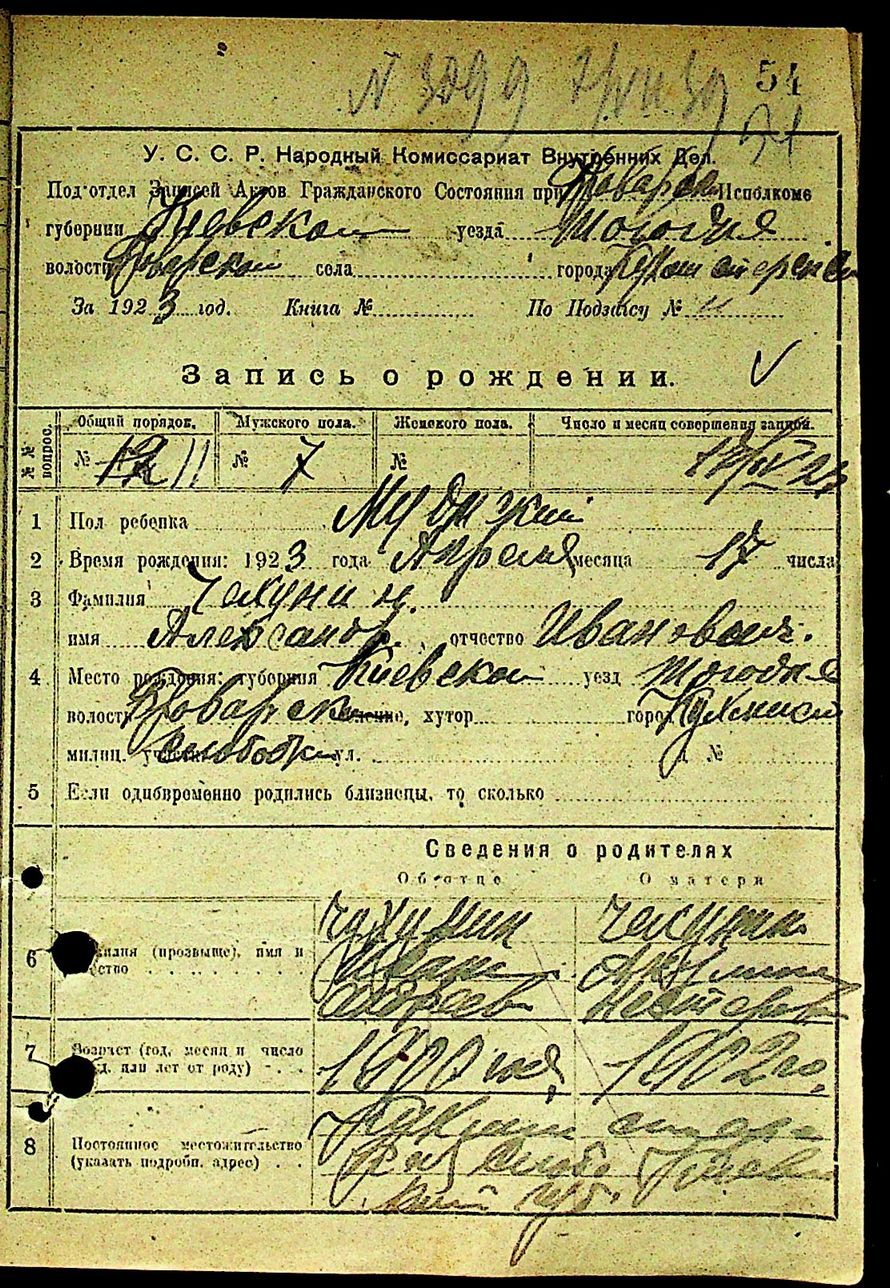 54
N 3099
У. С. С. Р. Народный Комиссариат Внутренних Дел.
Под'отдел Записей Актов Гражданского Состояния при Исполкоме
губернии Киевской уезда тогодне
волости села города
За 1923 год. Книга № По Подзагсу № 11
Запись о рождении.
№№ вопрос. Общий порядок. Мужского пола. Женского пола. Число и месяц совершения записи.
№ 12 11 № 7 №
1 Пол ребенка Мужской
2 Время рождения: 1923 года Апреля месяца 17 числа
3 Фамилия Чахунин
имя Александр. , отчество Иванович.
4 Место рождения: губерния Киевской уезд тогодне
волость Броварск селение, хутор город
милиц. участка Слободка ул. д №
5 Если одновременно родились близнецы, то сколько
Сведения о родителях
Об отце О матери
6 Фамилия (прозвище), имя и отчество
Чахунин Чахунин
Иван Акулина
Андреев Нестеров
7 Возраст (год, месяц и число рожд. или лет от роду) 1900 1902 го,
8 Постоянное местожительство (указать подробн. адрес)
Киев
кий губ.